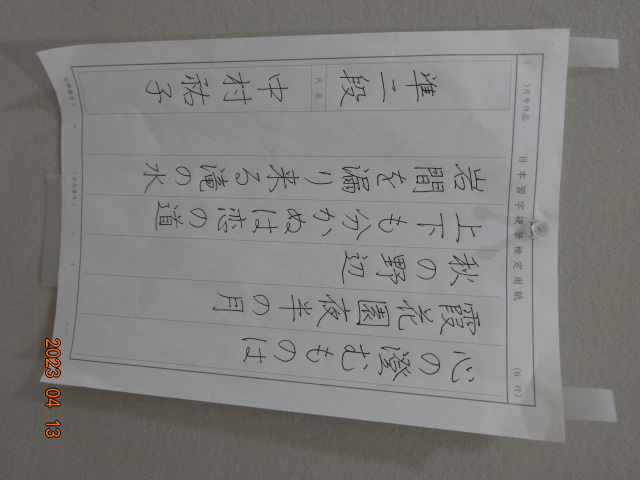 ( )月号作品 日本習字硬筆検定用紙 (6行)
心の澄むものは
霞花園夜半の月
秋の野辺
上下も分かぬは恋の道
岩間を漏り来る滝の水
準二段 氏名 中村祐子
2023 04 13